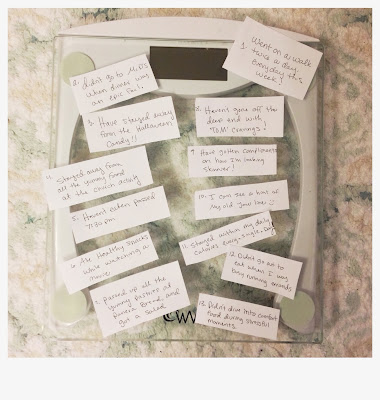 1. Went on a walk
twice a day
everyday this
week!
2. Didn't go to McD's
when dinner was
an epic fail.
3. Have stayed away
from the Halloween
Candy!!
4. Stayed away from
all the yummy food
at the church activity
5. Haven't eaten passed
7:30 pm
6. Ate Healthy snacks
while watching a
movie
7. passed up all the
yummy pastries at
Panera Bread, and
got a salad
8. Haven't gone off the
deep end with
"TOM" cravings!
9. Have gotten compliments
on how I'm looking
skinnier!
10. I can see a hint of
my old jaw line :)
11. Stayed within my daily
calories every-single-day
12. Didn't go out to
eat when I was
busy running errands
13. Didn't dive into comfort
food during stressful
moments.
WW